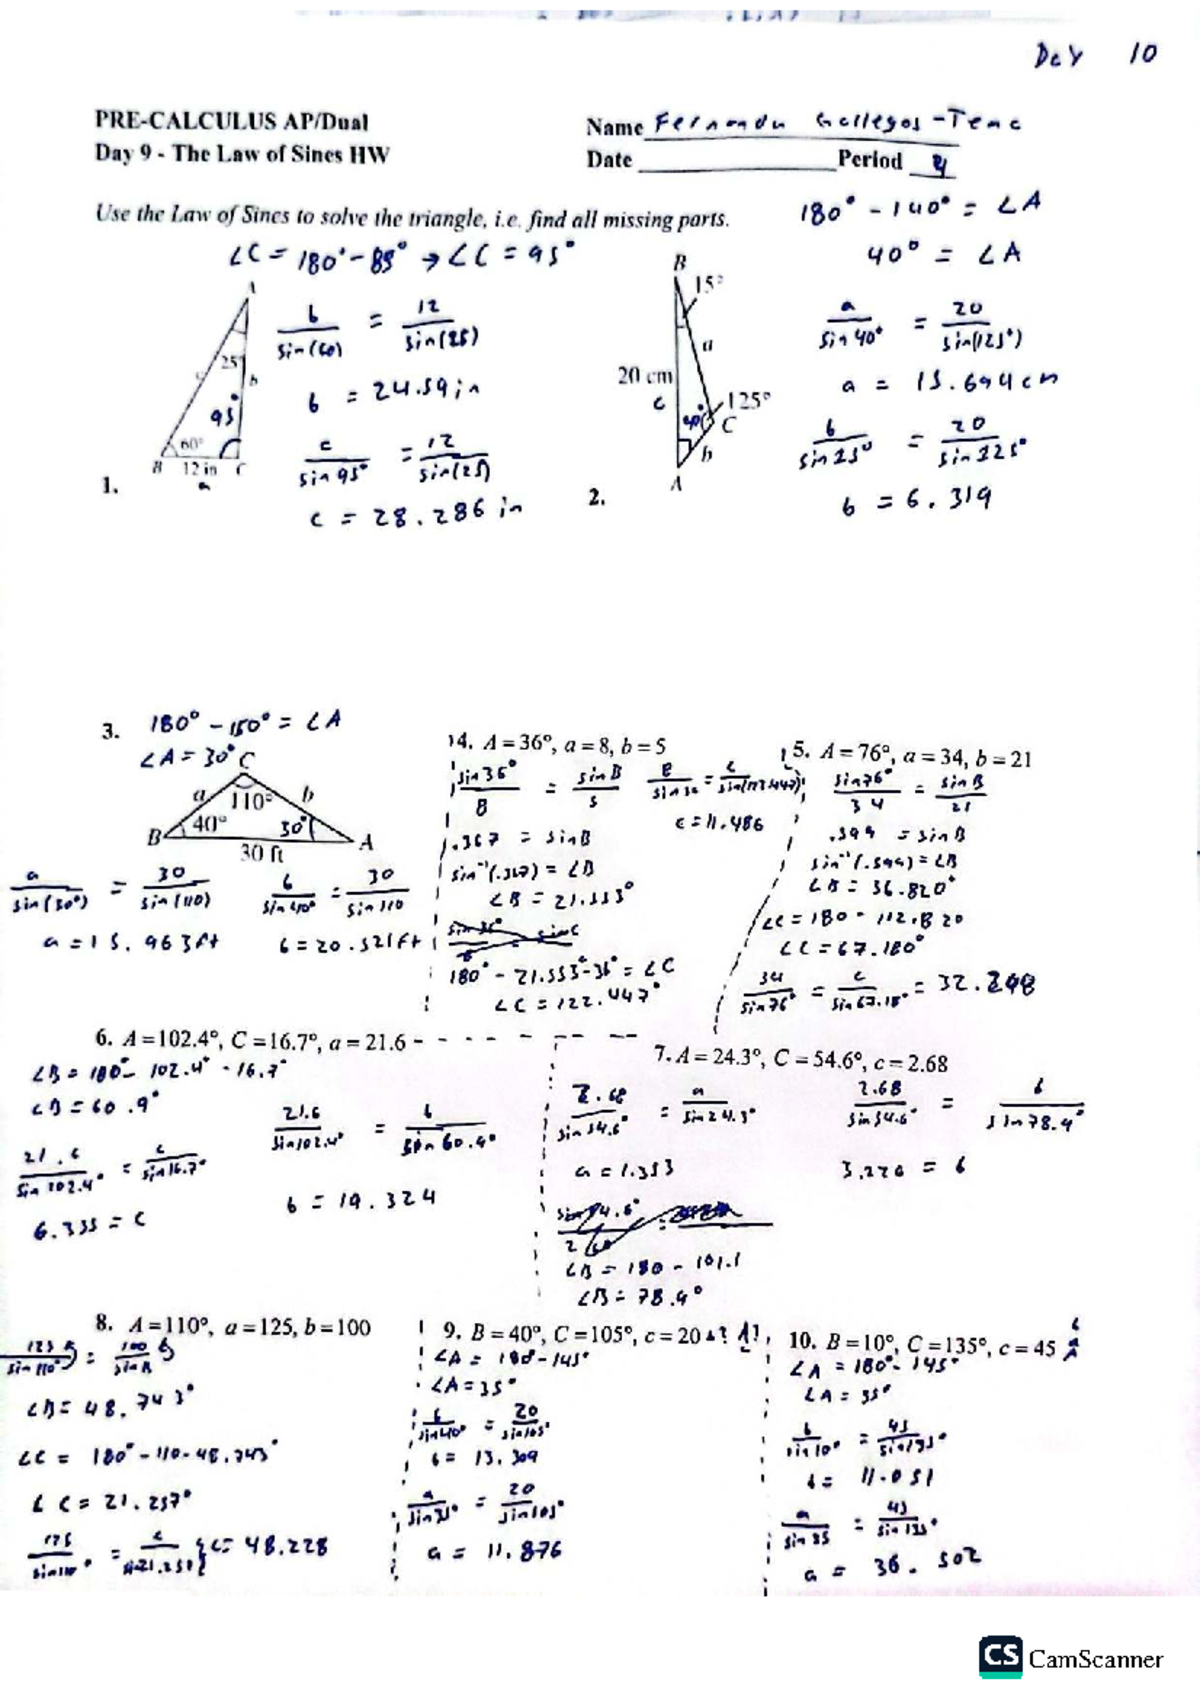 Day 10
PRE-CALCULUS AP/Dual
Day 9 - The Law of Sines HW
Name
Date Period 4
Use the Law of Sines to solve the triangle, i.e. find all missing parts.
1.
∠C = 180° - 85° → ∠C = 95°
A
25°
c
b
95°
60°
B 12 in C
a
b/sin(60) = 12/sin(25)
b = 24.59 in
c/sin 95° = 12/sin(25)
c = 28.286 in
2.
180° - 140° = ∠A
40° = ∠A
B
15°
a
20 cm
c
125°
40°
C
b
A
a/sin 40° = 20/sin(125°)
a = 15.694 cm
b/sin 15° = 20/sin 125°
b = 6.319
3.
180° - 150° = ∠A
∠A = 30°
C
a 110° b
B 40° 30° A
30 ft
a/sin(30°) = 30/sin(110)
a = 15.963 ft
b/sin 40° = 30/sin 110
b = 20.521 ft
14. A = 36°, a = 8, b = 5
sin 36°/8 = sin B/5
.367 = sin B
sin⁻¹(.367) = ∠B
∠B = 21.553°
180° - 21.553° - 36° = ∠C
∠C = 122.447°
c = 11.486
15. A = 76°, a = 34, b = 21
sin 76°/34 = sin B/21
.599 = sin B
sin⁻¹(.599) = ∠B
∠B = 36.820°
∠C = 180 - 112.820
∠C = 67.180°
34/sin 76° = c/sin 67.18° = 32.298
6. A = 102.4°, C = 16.7°, a = 21.6
∠B = 180° - 102.4° - 16.7°
∠B = 60.9°
21.6/sin 102.4° = c/sin 16.7°
6.355 = c
21.6/sin 102.4° = b/sin 60.9°
b = 19.324
7. A = 24.3°, C = 54.6°, c = 2.68
2.68/sin 54.6° = a/sin 24.3°
a = 1.353
∠B = 180 - 101.1
∠B = 78.9°
2.68/sin 54.6° = b/sin 78.9°
3.226 = b
8. A = 110°, a = 125, b = 100
∠B = 48.743°
∠C = 180° - 110 - 48.743°
∠C = 21.257°
125/sin 110° = c/sin 21.257 c = 48.228
9. B = 40°, C = 105°, c = 20
∠A = 180° - 145°
∠A = 35°
b/sin 40° = 20/sin 105°
b = 13.309
a/sin 35° = 20/sin 105°
a = 11.876
10. B = 10°, C = 135°, c = 45
∠A = 180° - 145°
∠A = 35°
b/sin 10° = 45/sin 135°
b = 11.051
a/sin 35 = 45/sin 135°
a = 36.502
CS CamScanner